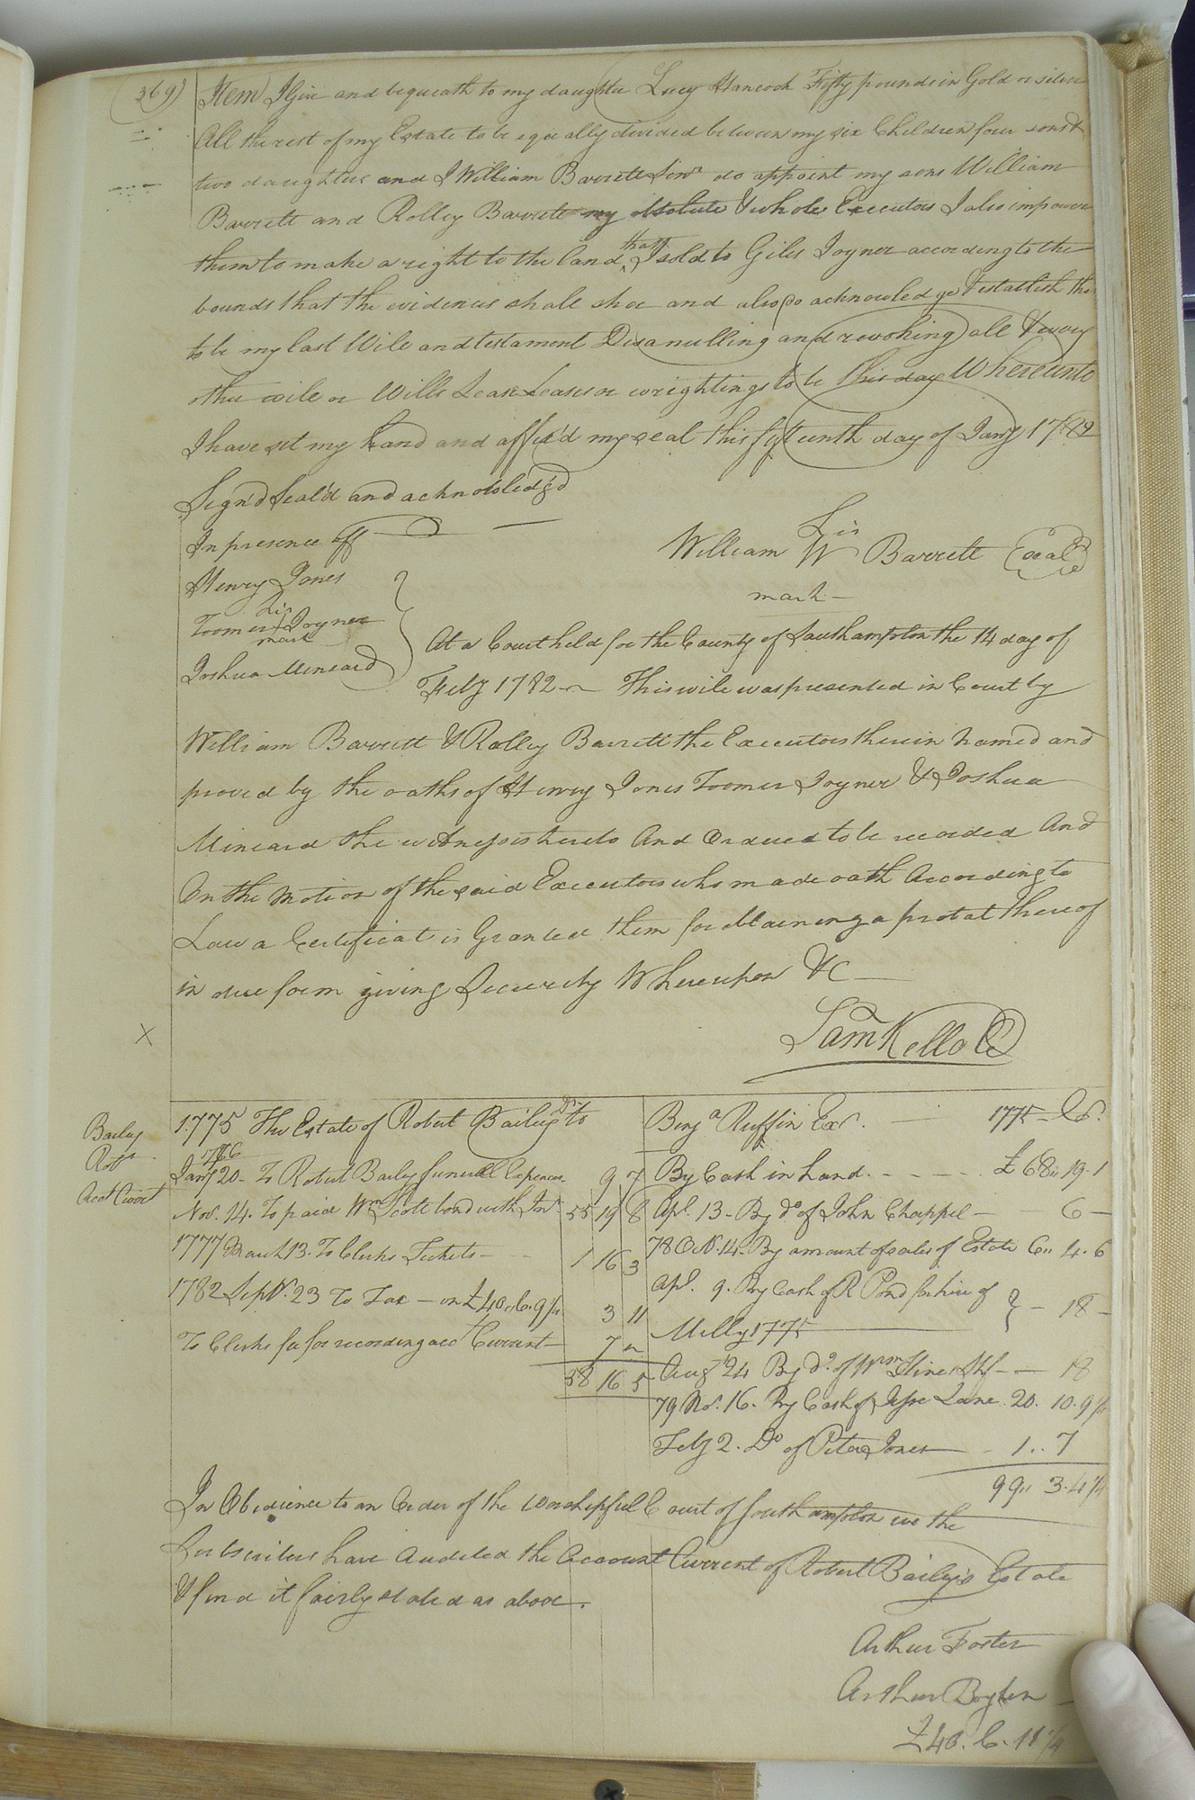 369)
Item I Give and bequeath to my daughter Lucy Hancock Fifty pounds in Gold or silver
All the rest of my Estate to be equally divided between my six Children four sons &
two daughters and I William Barrett Senr do appoint my sons William
Barrett and Rolley Barrett my absolute & whole Executors I also impower
them to make a right to the land that I sold to Giles Joyner according to the
bounds that the evidences shall shoe and also do acknowledge & establish this
to be my last Will and testament Disanulling and revoking all & every
other wile or Wills Lease Leases or wrightings to be this day Whereunto
I have set my hand and affix'd my seal this fifteenth day of Jany 1782
Sign'd Seal'd and acknowledg'd
In presence off
Henry Jones
his
Toomer Joyner
mark
Joshua Mineard
his
William W Barrett Seal
mark
At a Court held for the County of Southampton the 14 day of
Feby 1782 This wile was presented in Court by
William Barrett & Rolley Barrett the Executors therein Named and
proved by the oaths of Henry Jones Toomer Joyner & Joshua
Mineard the witnesses thereto And Ordered to be recorded And
On the Motion of the said Executors who made oath According to
Law a Certificat is Granted them for obtaining a probat thereof
in due form giving Security Whereupon &C
Sam Kello CC
X
Bailey
Robt
Acct Curt
1775 The Estate of Robert Bailey Dr to
1776
Jany 20 - To Robert Bailey funerall Expences 9 7
Nov. 14. To paid Wm Scott bond with Intr 55 19 8
1777 March 13. To Clerks Tickets 1 16 3
1782 Sepr. 23 To Tax - on £40.6.9¼ 3 11
To Clerks fee for recording acct Current 7
58 16 5
Benja Ruffin Exr. 1775 Cr.
By Cash in hand £68.. 19. 1
Apl. 13 - By do of John Chappel - 6 -
78 Octr. 14 - By amount of sales of Estate 6.. 4. 6
Apl. 9. By Cash of R Pond for hire of
Milly 1775 } - 18 -
Augt 24 By Do. of Wm Hines Shf - 18
79 Nor. 16. By Cash of Jesse Lane 20. 10. 9¼
Feby 2. Do of Peter Jones 1.. 7
99.. 3. 4¼
In Obedience to an Order of the Worshipfull Court of Southampton we the
Subscribers have Audited the Account Current of Robert Baily's Estate
& find it fairly stated as above.
Arthur Foster
Arthur Boykin
£40. 6. 11¼